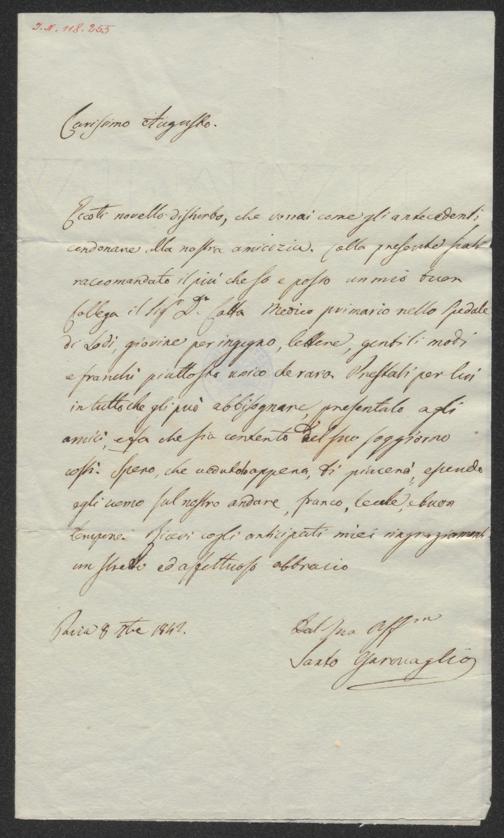 I.N. 118.255
Carissimo Augusto.
Eccoti novello disturbo, che vorrai come gli antecedenti
condonare alla nostra amicizia. Colla presente
raccomandato il più che so e posso un mio buon
Collega il Sigr Dr Medico primario nello Spedale
di Lodi, giovine per ingegno, lettere, gentili modi
e franchi piuttosto unico che raro. Prestati per lui
in tutto che gli può abbisognare, presentalo agli
amici, e fa che sia contento del suo soggiorno
costì. Spero, che vedutolo appena, ti piacerà, essendo
egli uomo sul nostro andare, franco, leale, e buon
Ricevi cogli anticipati miei ringraziamenti
un stretto ed affettuoso abbraccio
Pavia 8 1842.
Dal tuo Affmo
Santo Garovaglio